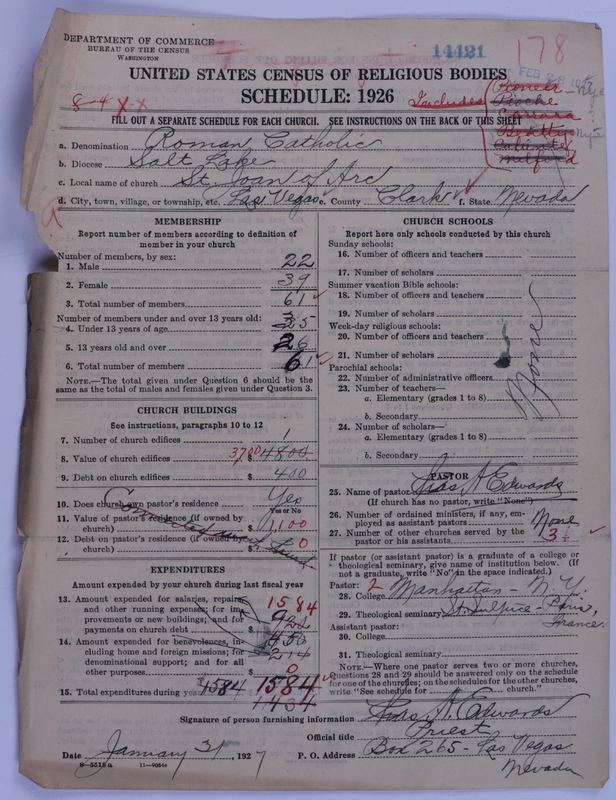 DEPARTMENT OF COMMERCE
BUREAU OF THE CENSUS
WASHINGTON
14421
178
FEB 28
UNITED STATES CENSUS OF RELIGIOUS BODIES
SCHEDULE: 1926
8-4 x-x
Includes
Pioneer
Pioche
Carrara
Beatty
Caliente
Milford
FILL OUT A SEPARATE SCHEDULE FOR EACH CHURCH. SEE INSTRUCTIONS ON THE BACK OF THIS SHEET
a. Denomination Roman Catholic
b. Diocese Salt Lake
c. Local name of church St. Joan of Arc
d. City, town, village, or township, etc. Las Vegas e. County Clark f. State Nevada
MEMBERSHIP
Report number of members according to definition of member in your church
Number of members, by sex:
1. Male 22
2. Female 39
3. Total number of members 61
Number of members under and over 13 years old:
4. Under 13 years of age 35
5. 13 years old and over 26
6. Total number of members 61
NOTE.—The total given under Question 6 should be the same as the total of males and females given under Question 3.
CHURCH BUILDINGS
See instructions, paragraphs 10 to 12
7. Number of church edifices 1
8. Value of church edifices 3700 $ 4800
9. Debt on church edifices $ 400
10. Does church own pastor's residence Yes
Yes or No
11. Value of pastor's residence (if owned by church) $ 1,100
12. Debt on pastor's residence (if owned by church) $ 0
EXPENDITURES
Amount expended by your church during last fiscal year
13. Amount expended for salaries, repairs and other running expenses; for improvements or new buildings; and for payments on church debt 1584
14. Amount expended for benevolences, including home and foreign missions; for denominational support; and for all other purposes $ 0
15. Total expenditures during year $1584 1584
1434
CHURCH SCHOOLS
Report here only schools conducted by this church
Sunday schools:
16. Number of officers and teachers
17. Number of scholars
Summer vacation Bible schools:
18. Number of officers and teachers
19. Number of scholars
Week-day religious schools:
20. Number of officers and teachers
21. Number of scholars
Parochial schools:
22. Number of administrative officers
23. Number of teachers—
a. Elementary (grades 1 to 8)
b. Secondary
24. Number of scholars—
a. Elementary (grades 1 to 8)
b. Secondary
None
PASTOR
25. Name of pastor Jas A Edwards
(If church has no pastor, write "None")
26. Number of ordained ministers, if any, employed as assistant pastors None
27. Number of other churches served by the pastor or his assistants 3
If pastor (or assistant pastor) is a graduate of a college or theological seminary, give name of institution below. (If not a graduate, write "No" in the space indicated.)
Pastor: 2
28. College Manhattan - N.Y.
29. Theological seminary St. Sulpice - Paris, France.
Assistant pastor:
30. College
31. Theological seminary
NOTE.—Where one pastor serves two or more churches, Questions 28 and 29 should be answered only on the schedule for one of the churches; on the schedules for the other churches, write "See schedule for church."
Signature of person furnishing information Jas A. Edwards
Official title Priest
Date January 31, 1927 P. O. Address Box 265 - Las Vegas
Nevada
8-5518a 11-9054